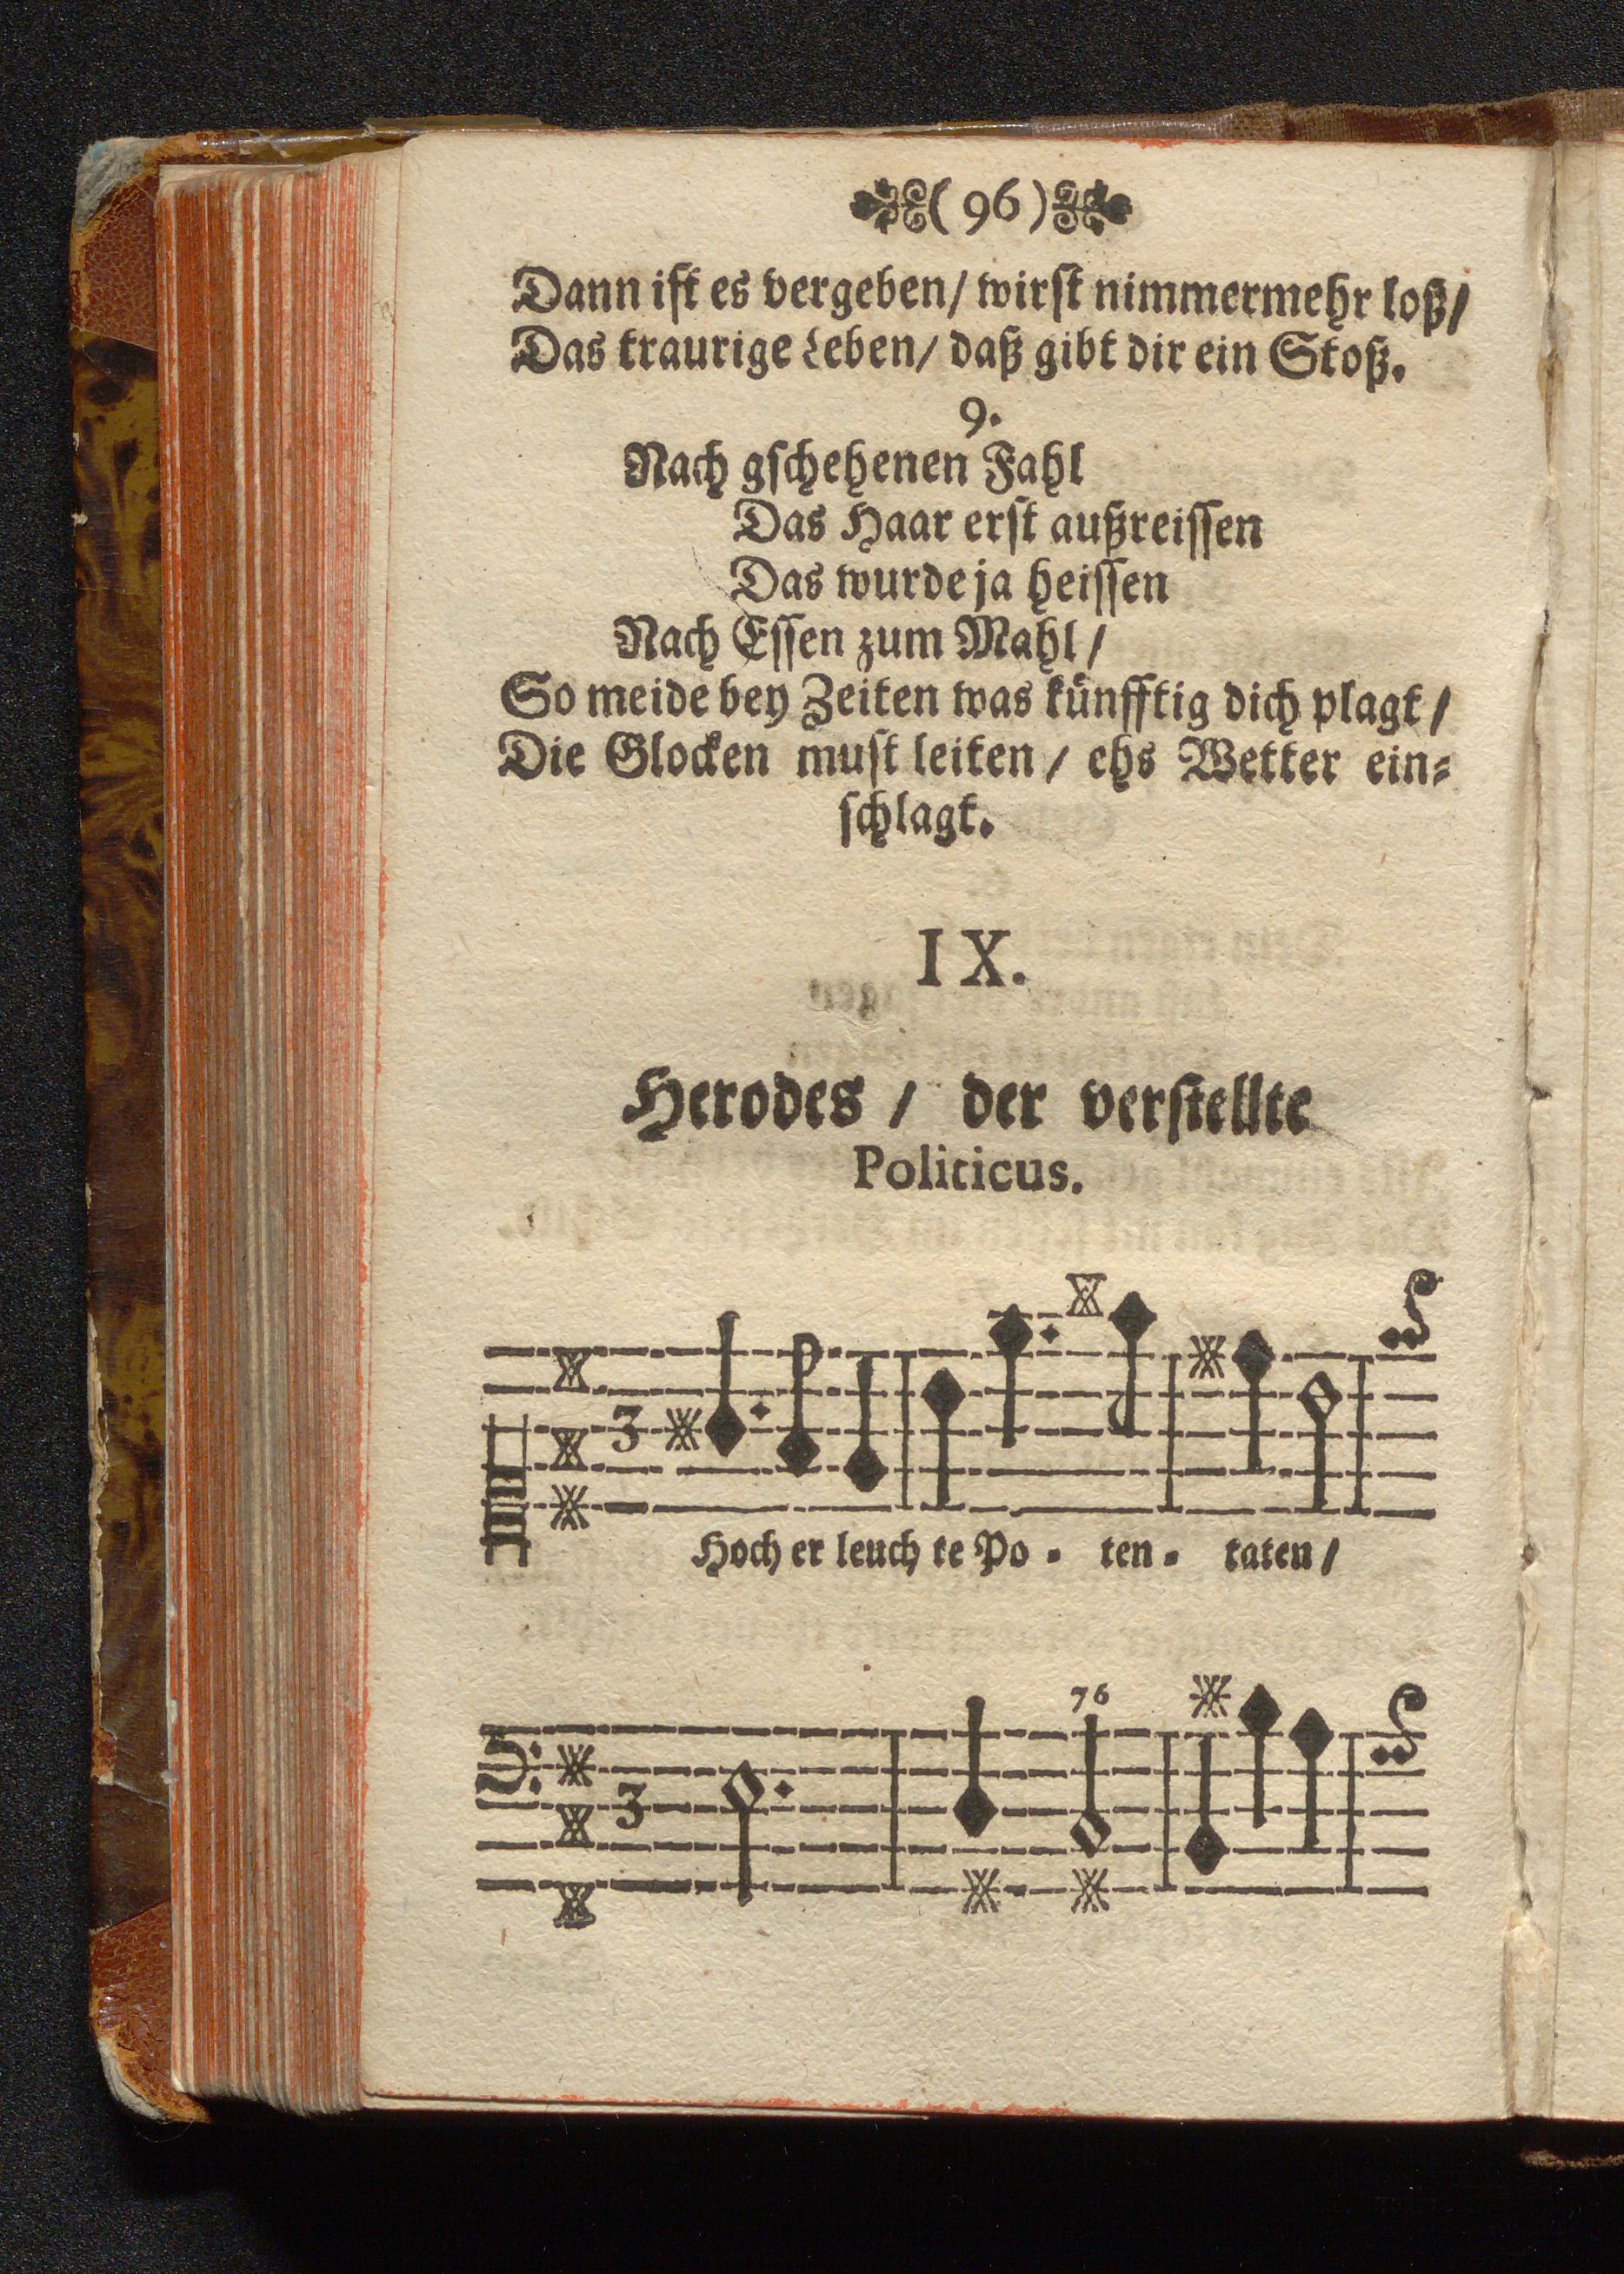 ( 96 )
Dann ist es vergeben/ wirst nimmermehr loß/
Das traurige Leben/ daß gibt dir ein Stoß.
9.
Nach gschehenen Fahl
Das Haar erst außreissen
Das wurde ja heissen
Nach Essen zum Mahl/
So meide bey Zeiten was künfftig dich plagt/
Die Glocken must leiten/ ehs Wetter ein=
schlagt.
IX.
Herodes / der verstellte
Politicus.
3
Hoch er leuch te Po = ten = taten/
76
3